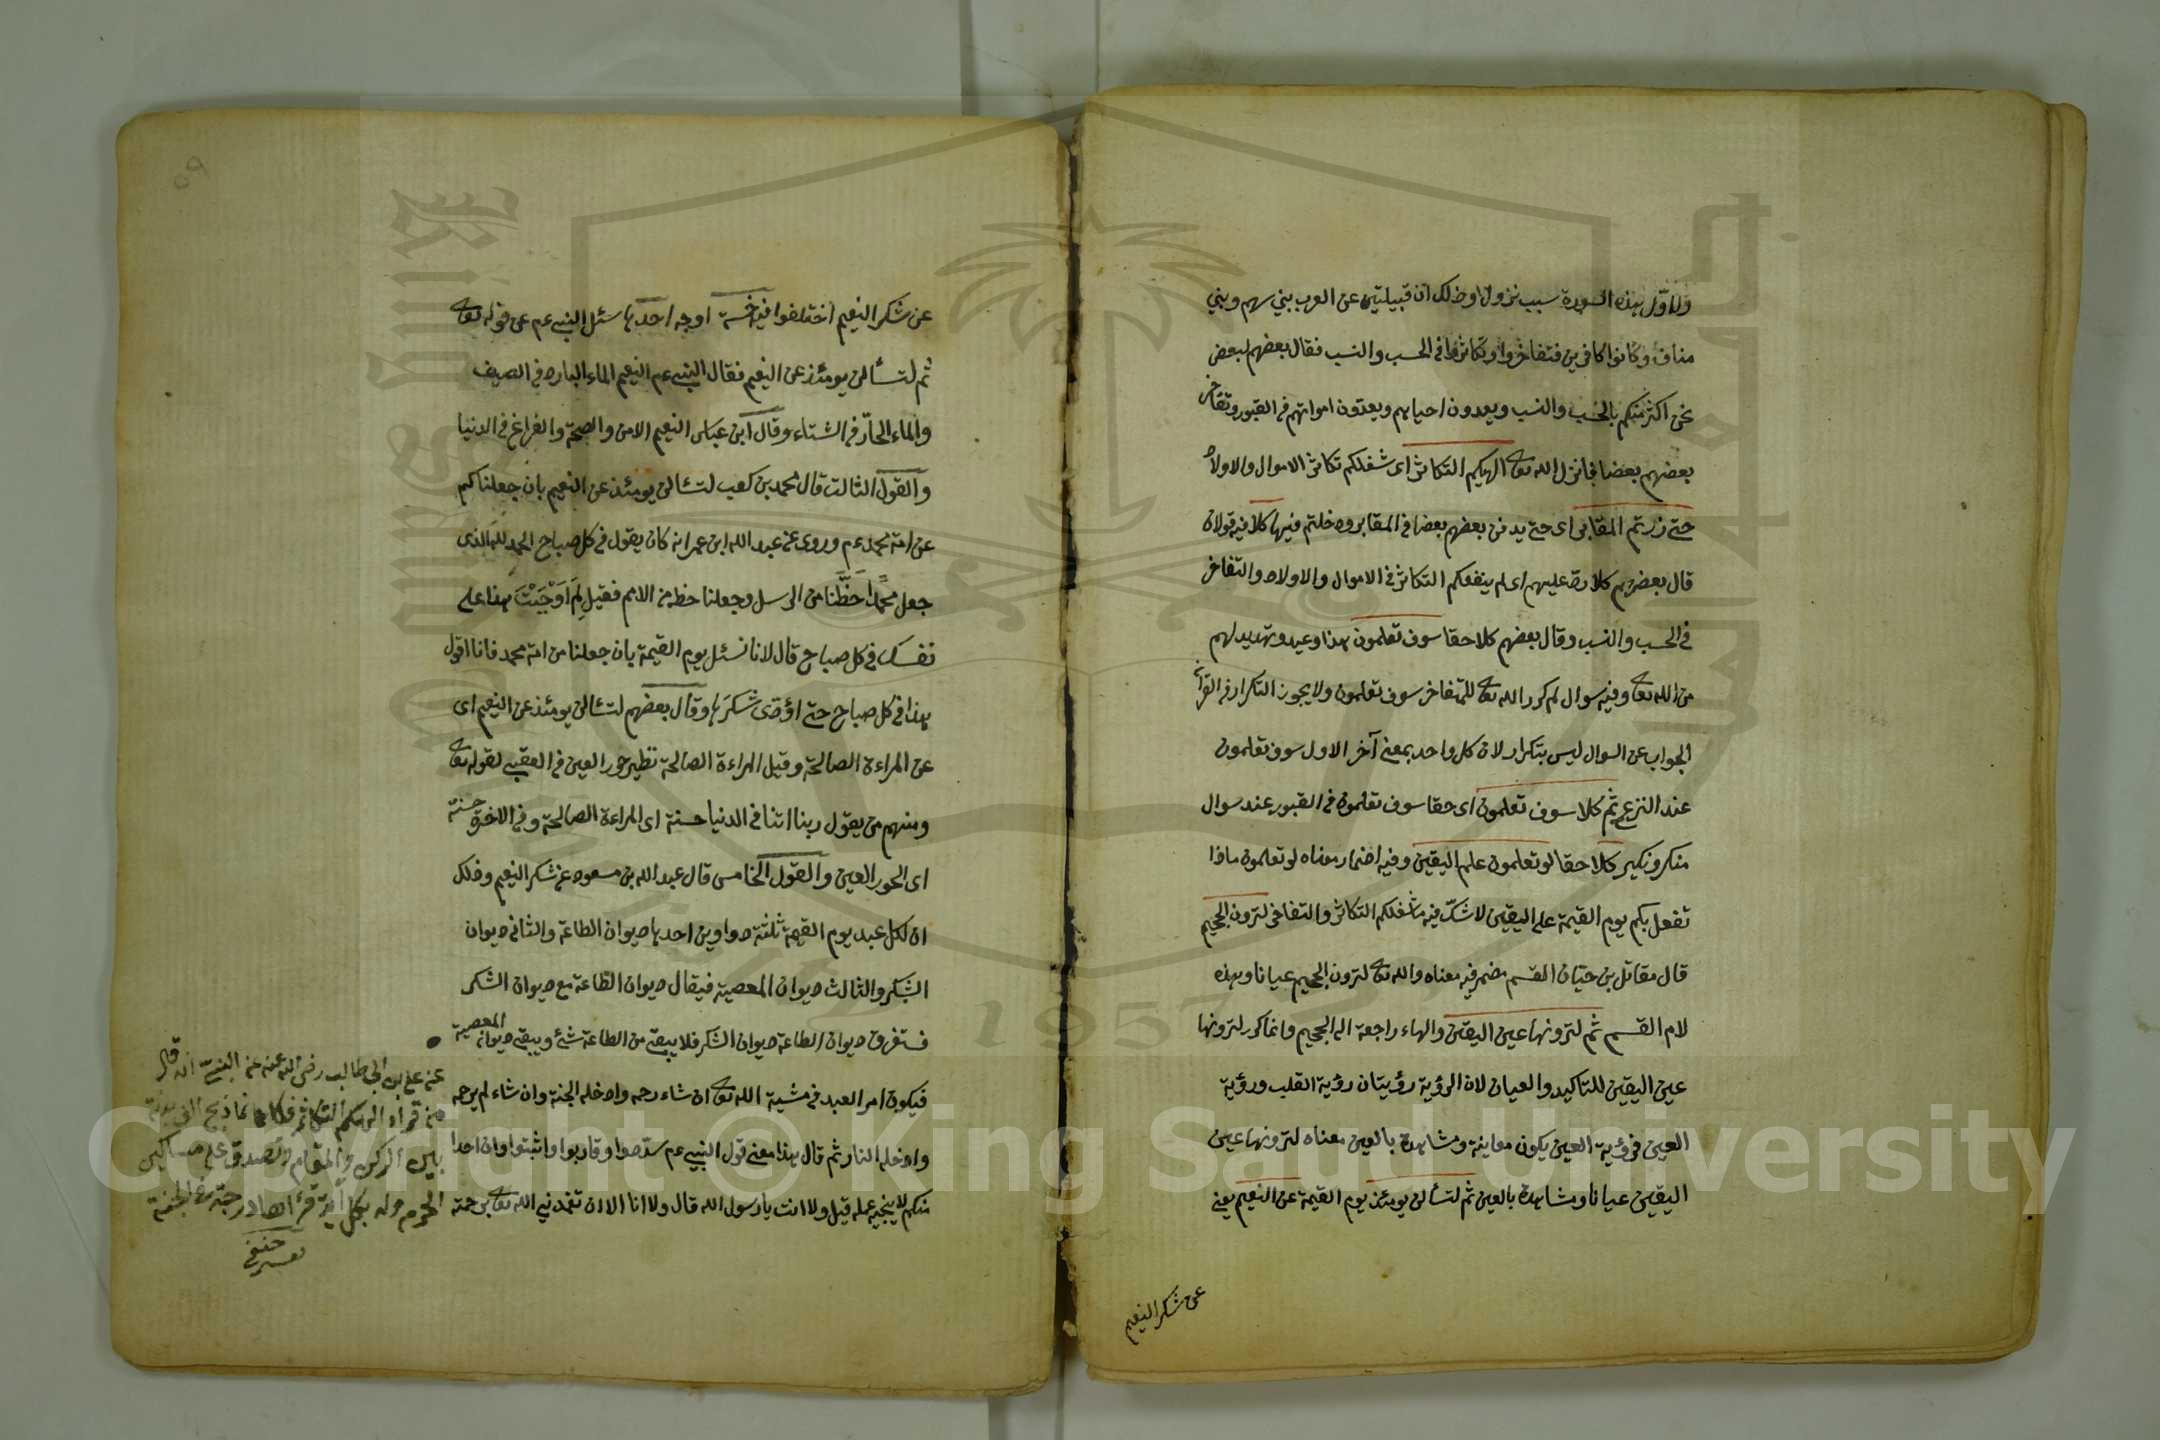 ولاول هذه السورة سبب نزول وذلك ان قبيلتين عن العرب بني سهم وبني
مناف وكانوا كافرين فتفاخروا وتكاثروا في الحسب والنسب فقال بعضهم لبعض
نحن اكثر منكم بالحسب والنسب ويعدون احياهم ويعدون امواتهم في القبور وتفاخر
بعضهم بعضا فانزل الله تعا الهيكم التكاثر اى شغلكم تكاثر الاموال والاولاد
حتى زرتم المقابر اى حتى يدفن بعضهم بعضا في المقابر ودخلتم فيها كلا فيه قولان
قال بعضهم كلا رد عليهم اى لم ينفعكم التكاثر في الاموال والاولاد والتفاخر
في الحسب والنسب وقال بعضهم كلا حقا سوف تعلمون هذا وعيد وتهديد لهم
من الله تعا وفيه سوال لم كرر الله تعا للمتفاخر سوف تعلمون ولا يجوز التكرار في القرآن
الجواب عن السوال ليس بتكرار لان كل واحد بمعنى آخر الاول سوف تعلمون
عند النزع ثم كلا سوف تعلمون اى حقا سوف تعلمون في القبور عند سوال
منكر ونكير كلا حقا لو تعلمون علم اليقين وفيه اضمار معناه لو تعلمون ماذا
تفعل بكم يوم القيمة علم اليقين لا شك فيه ما شغلكم التكاثر والتفاخر لترون الجحيم
قال مقاتل بن حيان القسم مضمر فيه معناه والله تعا لترون الجحيم عيانا وهذه
لام القسم ثم لترونها عين اليقين والهاء راجعة الى الجحيم وانما كرر لترونها
عين اليقين للتاكيد والعيان لان الرؤية رؤيتان رؤية القلب ورؤية
العين فرؤية العين يكون معاينة ومشاهدة بالعين معناه لترونها عين
اليقين عيانا ومشاهدة بالعين ثم لتسألن يومئذ يوم القيمة عن النعيم يعني
عن شكر النعيم
٥٩
عن شكر النعيم اختلفوا فيه خمسة اوجه احدها سئل النبي عم عن قوله تعا
ثم لتسألن يومئذ عن النعيم فقال النبي عم النعيم الماء البارد في الصيف
والماء الحار في الشتاء وقال ابن عباس النعيم الامن والصحة والفراغ في الدنيا
والقول الثالث قال محمد بن كعب لتسألن يومئذ عن النعيم بان جعلناكم
عن امة محمد عم وروى عن عبد الله ابن عمر انه كان يقول في كل صباح الحمد لله الذى
جعل محمدا حظنا من الرسل وجعلنا حظه من الامم فقيل لم اوجبت هذا على
نفسك في كل صباح قال لانا نسئل يوم القيمة بان جعلنا من امة محمد فانا اقول
هذا في كل صباح حتى اؤدى شكرها وقال بعضهم لتسألن يومئذ عن النعيم اى
عن المراءة الصالحة وقيل المراءة الصالحة نظير حور العين في العقبى لقوله تعا
ومنهم من يقول ربنا اتنا في الدنيا حسنة اى المراءة الصالحة وفي الاخرة حسنة
اى الحور العين والقول الخامس قال عبد الله بن مسعود عن شكر النعيم وذلك
ان لكل عبد يوم القيمة ثلثة دواوين احدها ديوان الطاعة والثاني ديوان
الشكر والثالث ديوان المعصية فيقال ديوان الطاعة مع ديوان الشكر
فستغرق ديوان الطاعة ديوان الشكر فلا يبقى من الطاعة شئ ويبقى ديوانه المعصية
فيكون امر العبد في مشية الله تعا ان شاء رحمه وادخله الجنة وان شاء لم يرحمه
وادخله النار ثم قال هذا معنى قول النبي عم سددوا وقاربوا واثبتوا وان احدا
منكم لا ينجيه عمله قيل ولا انت يا رسول الله قال ولا انا الا ان تغمدني الله تعا برحمة
عن علي بن ابي طالب رضى الله عنه عن النبي انه قال
من قراء الهيكم التكاثر فكانما ذبح الفي بدنة
بين الركن والمقام وتصدق على مساكين
الحرم وله بكل آية قرأها درجة في الجنة
تفسير حنفي